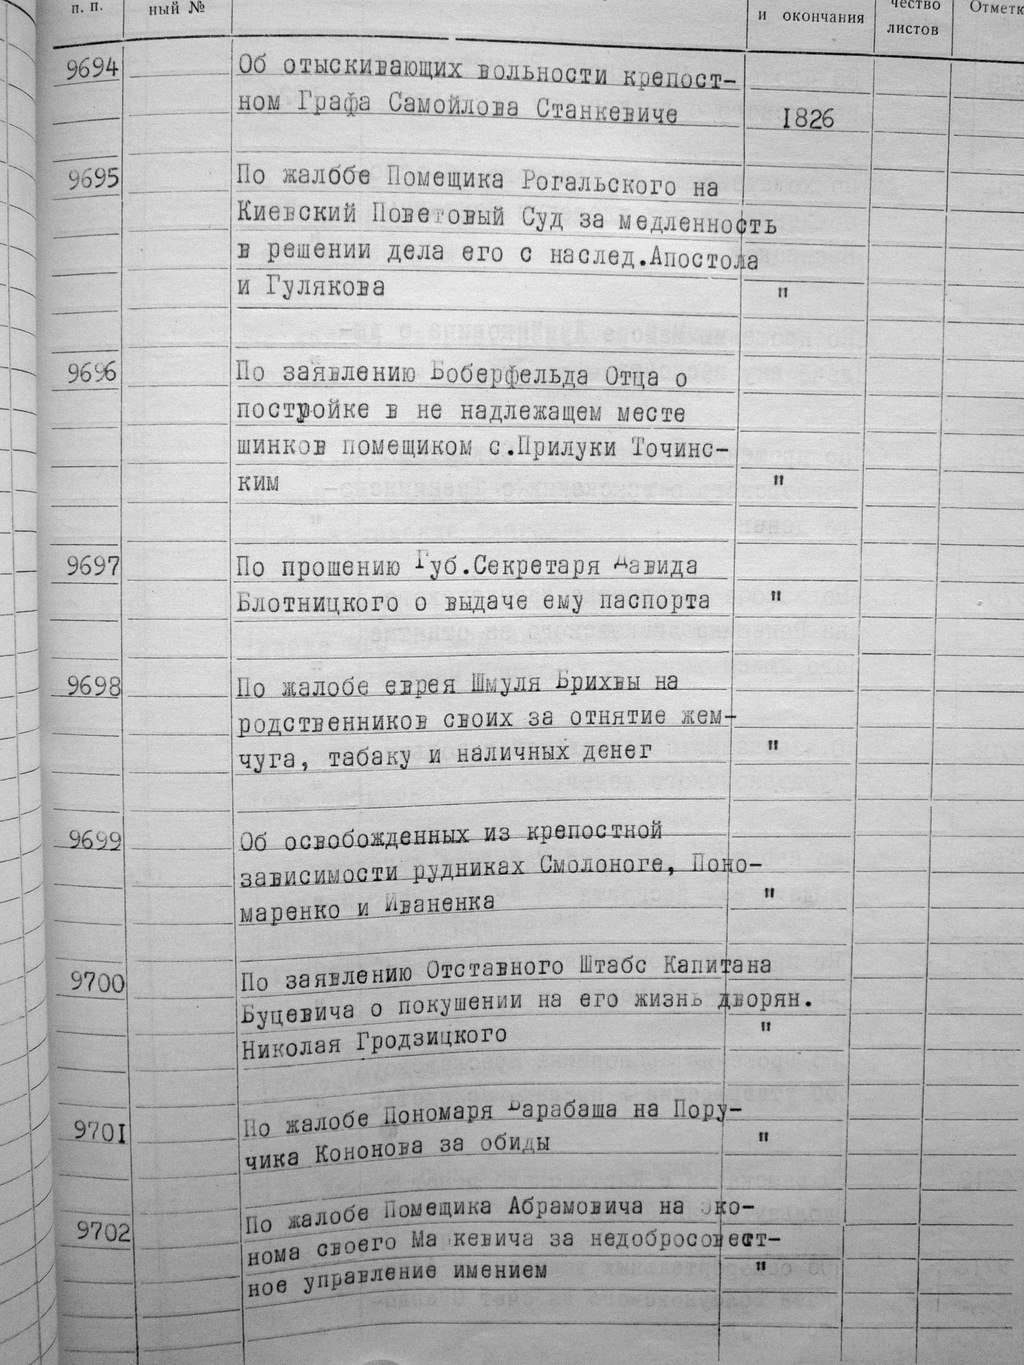 п. п.
ный №
и окончания
чество
листов
Отметк
9694
Об отыскивающих вольности крепост-
ном Графа Самойлова Станкевиче
1826
9695
По жалобе Помещика Рогальского на
Киевский Поветовый Суд за медленность
в решении дела его с наслед.Апостола
и Гулякова
"
9696
По заявлению Боберфельда Отца о
постройке в не надлежащем месте
шинков помещиком с.Прилуки Точинс-
ким
"
9697
По прошению Губ.Секретаря Давида
Блотницкого о выдаче ему паспорта
"
9698
По жалобе еврея Шмуля Брихвы на
родственников своих за отнятие жем-
чуга, табаку и наличных денег
"
9699
Об освобожденных из крепостной
зависимости рудниках Смолоноге, Поно-
маренко и Иваненка
"
9700
По заявлению Отставного Штабс Капитана
Буцевича о покушении на его жизнь дворян.
Николая Гродзицкого
"
9701
По жалобе Пономаря Барабаша на Пору-
чика Кононова за обиды
"
9702
По жалобе Помещика Абрамовича на эко-
нома своего Ма кевича за недобросовест-
ное управление имением
"